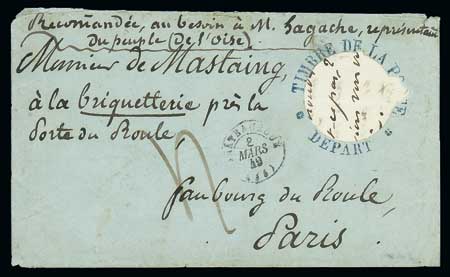 Recomandée, au besoin à M. Gagache, représentant
du peuple (de l'Oise).
Monsieur de Mastaing,
à la briquetterie près la
Porte du Roule,
faubourg du Roule,
Paris.
TIMBRE DE LA PO
DEPART
2
MARS
49
(44)